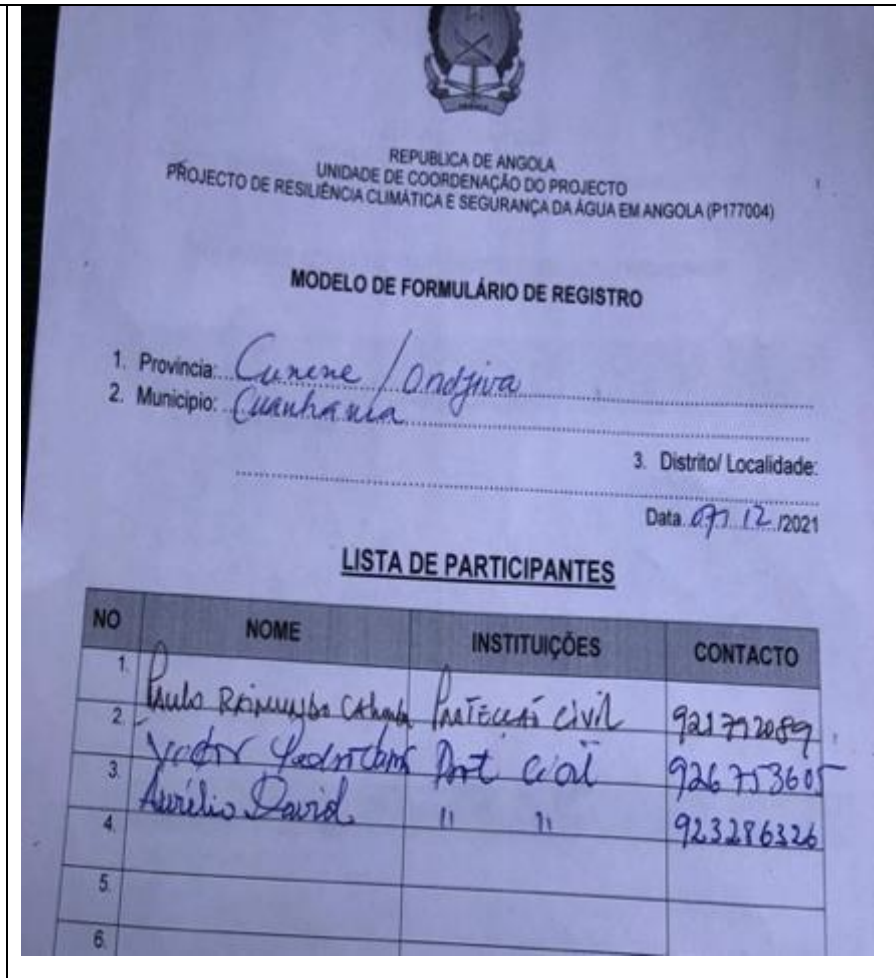 REPUBLICA DE ANGOLA
UNIDADE DE COORDENAÇÃO DO PROJECTO
PROJECTO DE RESILIÊNCIA CLIMÁTICA E SEGURANÇA DA ÁGUA EM ANGOLA (P177004)
MODELO DE FORMULÁRIO DE REGISTRO
1. Provincia: Cunene / Ondjiva
2. Municipio: Cuanhama
3. Distrito/ Localidade:
Data 12 /2021
LISTA DE PARTICIPANTES
NO NOME INSTITUIÇÕES CONTACTO
1. Paulo Civil 921792089
2. 926753605
3. Aurélio David " " 923286326
4.
5.
6.